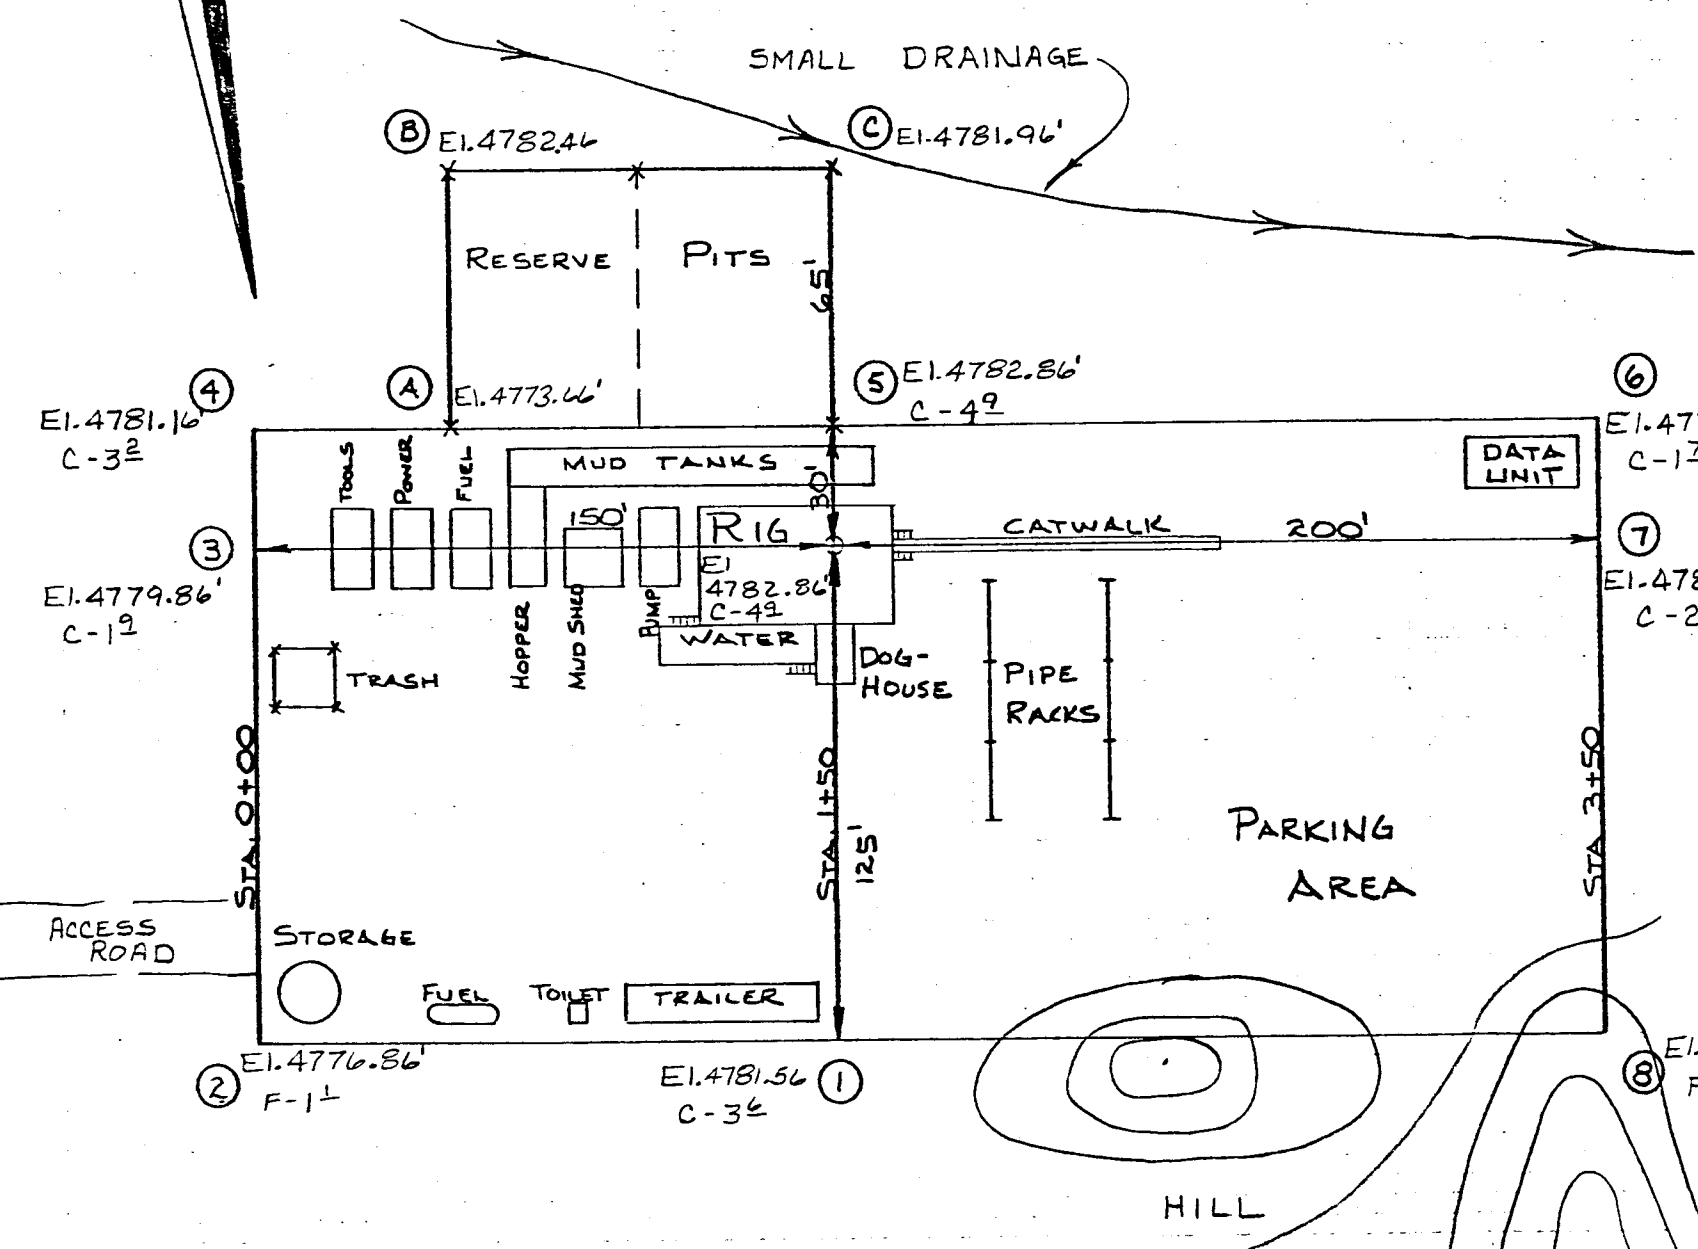 SMALL DRAINAGE
B El.4782.46
C El.4781.96'
RESERVE PITS
65'
4
El.4781.16'
C-3 2
A El.4773.66'
5 El.4782.86'
C-4 9
6
El.47
C-1 7
TOOLS
POWER
FUEL
MUD TANKS
30'
DATA
UNIT
3
El.4779.86'
C-1 9
150'
RIG
El
4782.86'
C-4 9
CATWALK
200'
7
El.478
C-2
HOPPER
MUD SHED
PUMP
WATER
DOG-
HOUSE
PIPE
RACKS
TRASH
STA. 0+00
STA. 1+50
125'
STA 3+50
PARKING
AREA
ACCESS
ROAD
STORAGE
FUEL
TOILET
TRAILER
2 El.4776.86'
F-1 1
El.4781.56
C-3 6
1
8
El.
F
HILL